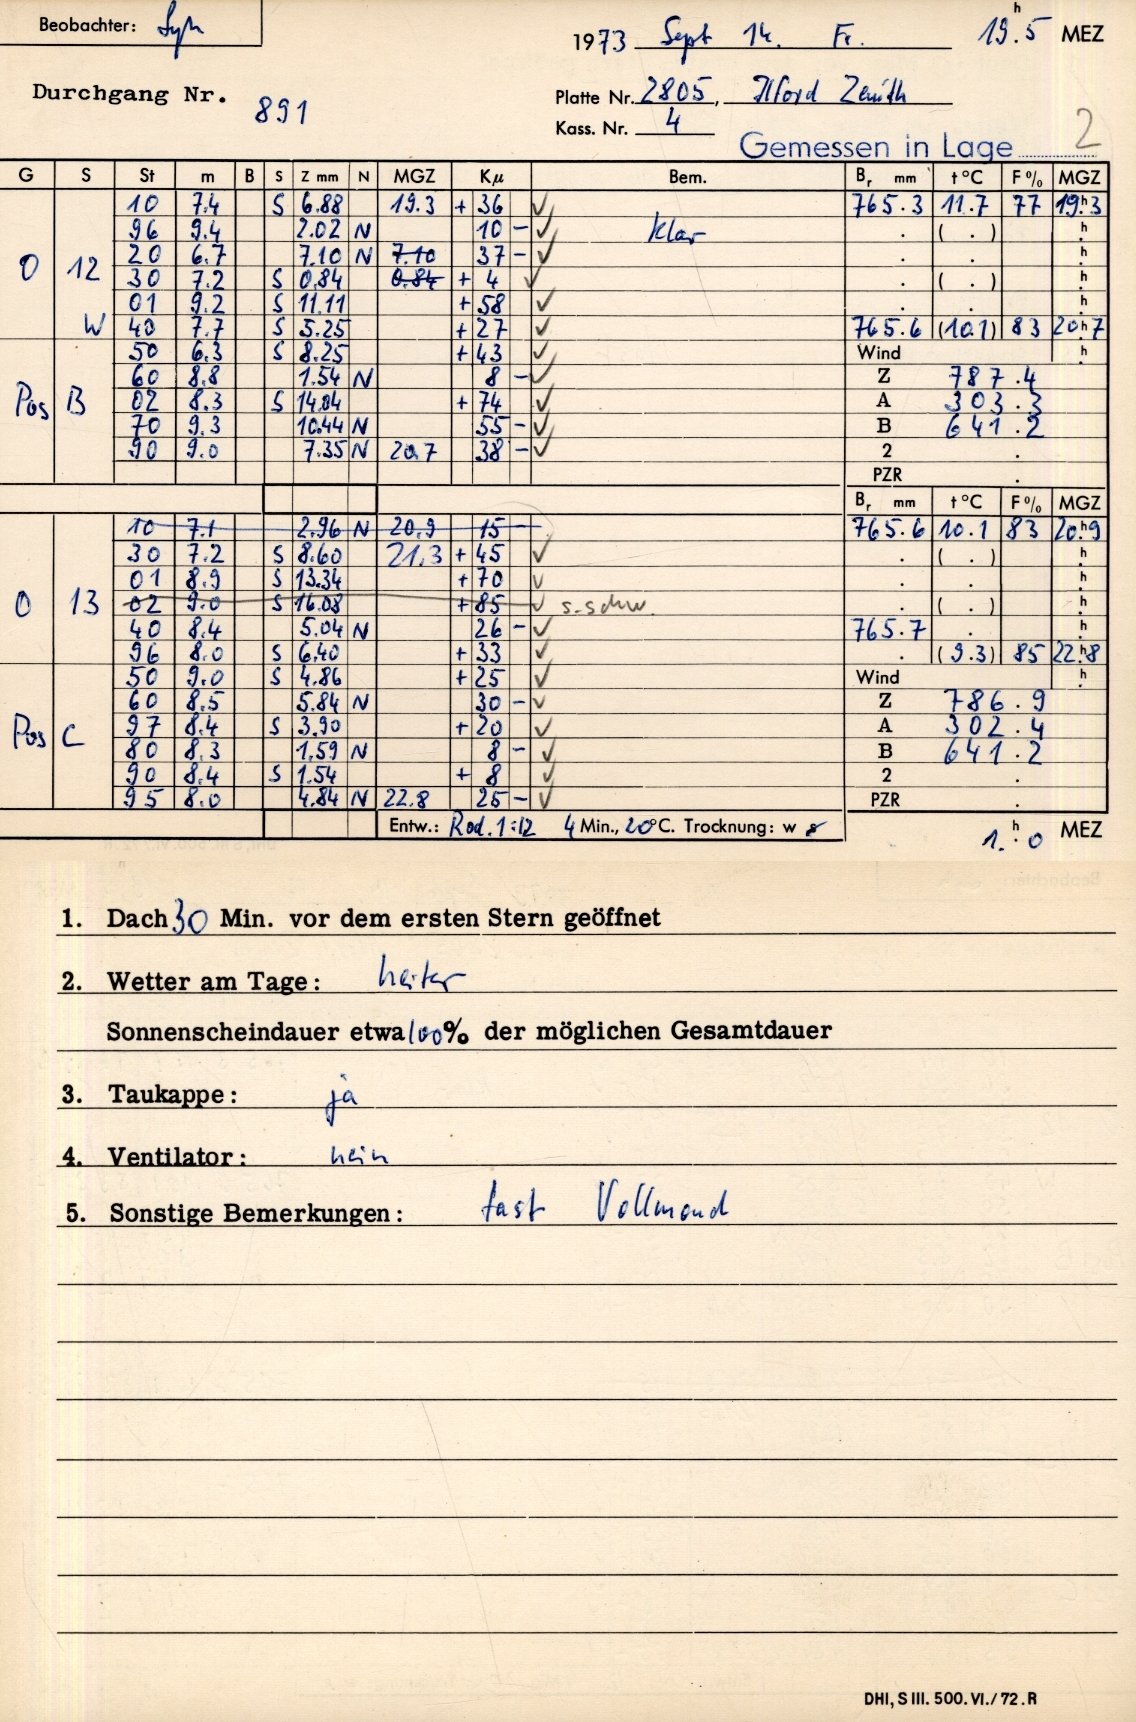 Beobachter:
1973 Sept 14. Fr. 19.h5 MEZ
Durchgang Nr. 891
Platte Nr. 2805, Ilford Zenith
Kass. Nr. 4
Gemessen in Lage 2
G S St m B S Z mm N MGZ Kμ Bem. Br mm t °C F % MGZ
10 7.4 S 6.88 19.3 + 36 ✓ 765.3 11.7 77 19h.3
96 9.4 2.02 N 10 - ✓ klar . ( . ) h.
O 12 20 6.7 7.10 N 7.10 37 - ✓ . . h.
30 7.2 S 0.84 0.84 + 4 ✓ . ( . ) h.
01 9.2 S 11.11 + 58 ✓ . . h.
W 40 7.7 S 5.25 + 27 ✓ 765.6 (10.1) 83 20h.7
50 6.3 S 8.25 + 43 ✓ Wind h.
60 8.8 1.54 N 8 - ✓ Z 787.4
Pos B 02 8.3 S 14.04 + 74 ✓ A 303.3
70 9.3 10.44 N 55 - ✓ B 641.2
90 9.0 7.35 N 20.7 38 - ✓ 2 .
PZR .
Br mm t °C F % MGZ
10 7.1 2.96 N 20.9 15 - 765.6 10.1 83 20h.9
30 7.2 S 8.60 21.3 + 45 ✓ . ( . ) h.
01 8.9 S 13.34 + 70 ✓ . . h.
O 13 02 9.0 S 16.08 + 85 ✓ s. schw. . ( . ) h.
40 8.4 5.04 N 26 - ✓ 765.7 . h.
96 8.0 S 6.40 + 33 ✓ . (9.3) 85 22h.8
50 9.0 S 4.86 + 25 ✓ Wind h.
60 8.5 5.84 N 30 - ✓ Z 786.9
Pos C 97 8.4 S 3.90 + 20 ✓ A 302.4
80 8.3 1.59 N 8 - ✓ B 641.2
90 8.4 S 1.54 + 8 ✓ 2 .
95 8.0 4.84 N 22.8 25 - ✓ PZR .
Entw.: Rod. 1:12 4 Min., 20°C. Trocknung: w 1.h0 MEZ
1. Dach 30 Min. vor dem ersten Stern geöffnet
2. Wetter am Tage: heiter
Sonnenscheindauer etwa 100% der möglichen Gesamtdauer
3. Taukappe: ja
4. Ventilator: nein
5. Sonstige Bemerkungen: fast Vollmond
DHI, S III. 500. VI./72. R